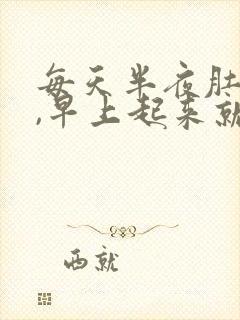 每天半夜肚
,早上起来就
西就